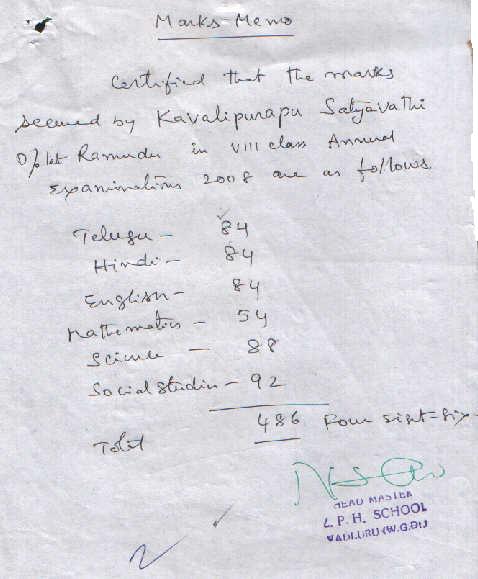 Marks Memo
Certified that the marks
secured by Kavalipurapu Satyavathi
D/o late Ramudu in VIII class Annual
Examinations 2008 are as follows
Telugu - 84
Hindi - 84
English - 84
Mathematics - 54
Science - 88
Social Studies - 92
Total 486 Four eight six
HEAD MASTER
Z.P.H. SCHOOL
VADLURU (W.G.Dt.)